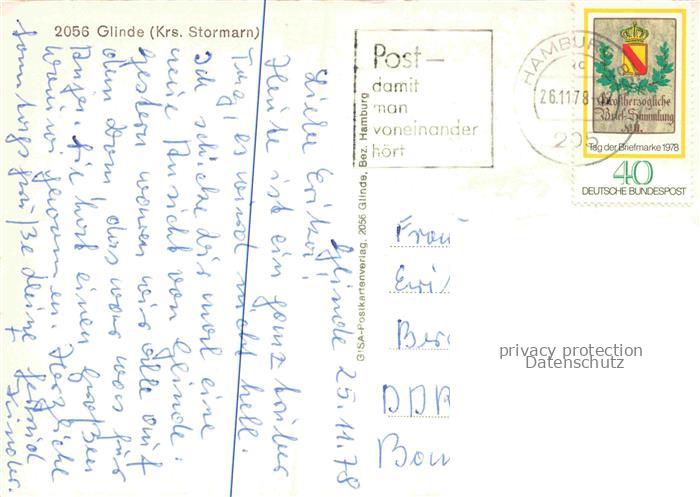 2056 Glinde (Krs. Stormarn)
Glinde 25.11.78
Liebe Erika!
Heute ist ein ganz trüber
Tag, es wird nicht hell.
Ich schicke dir mal eine
neue Ansicht von Glinde.
Gestern waren wir alle auf
dem Dom, das war was für
Anja. Sie hat einen großen
gewonnen. Herzliche
Sonntagsgrüße deine
GISA-Postkartenverlag, 2056 Glinde, Bez. Hamburg
Post—
damit
man
voneinander
hört
HAMBURG
26.11.78
205
Großherzogliche
Brief-Sammlung
Tag der Briefmarke 1978
40
DEUTSCHE BUNDESPOST
Frau
Eri
Ber
DDR
privacy protection
Datenschutz